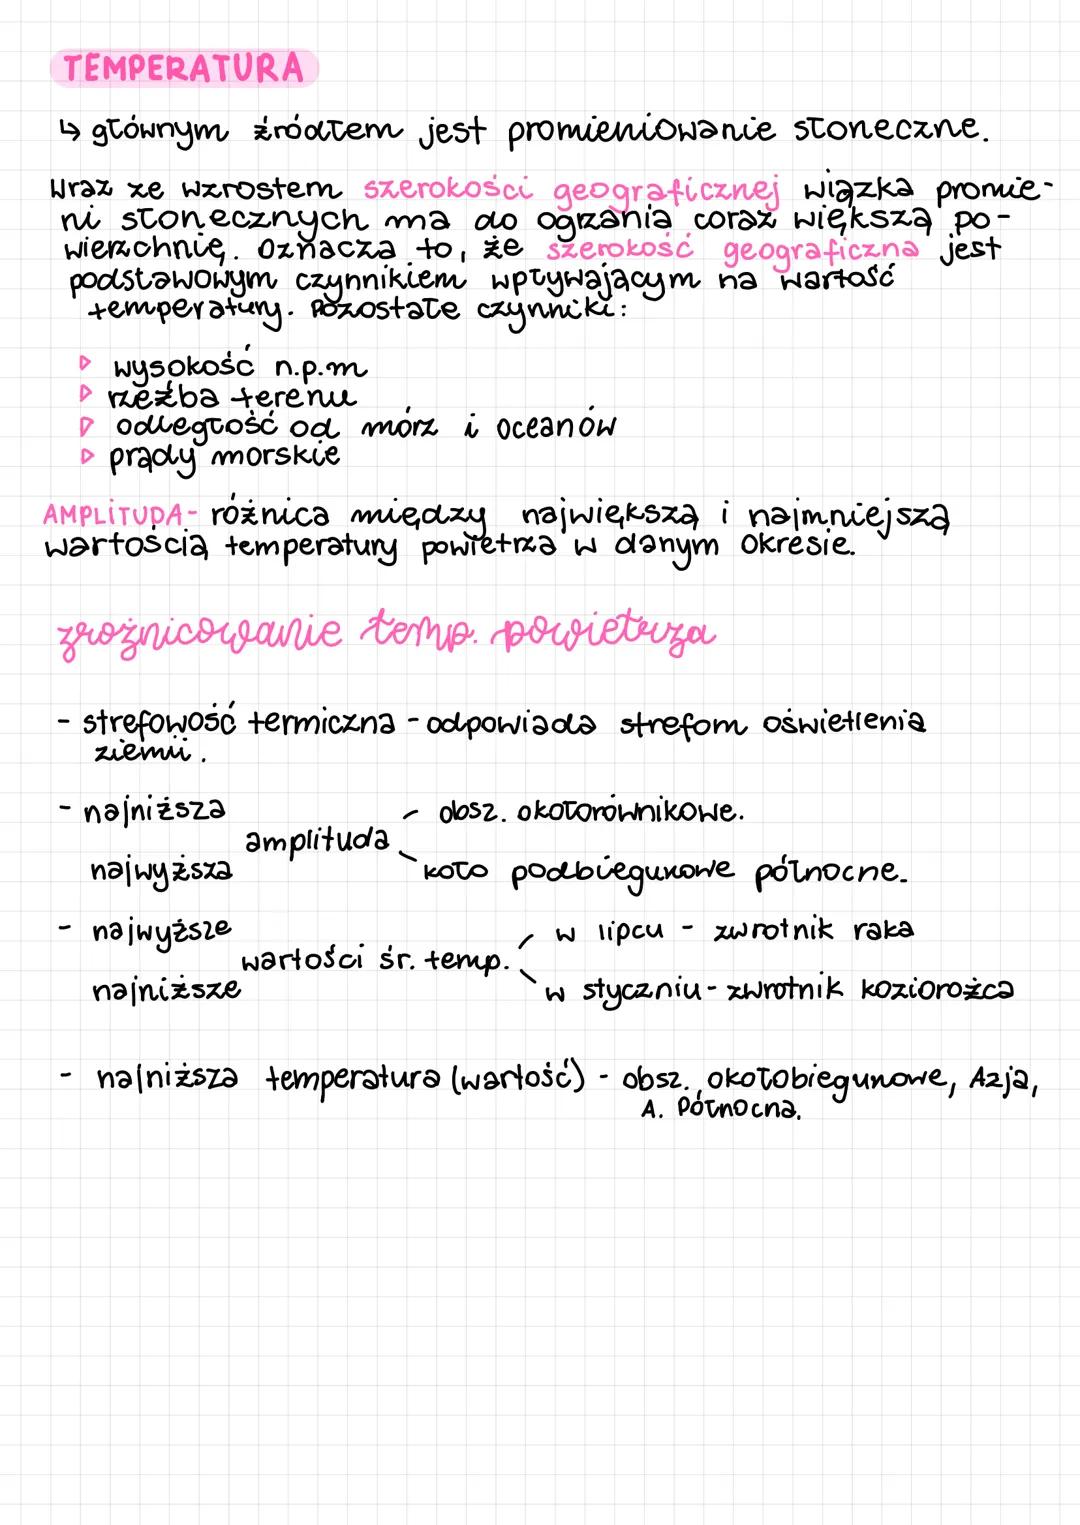 TEMPERATURA
↳ głównym źródłem jest promieniowanie słoneczne.
Wraz ze wzrostem szerokości geograficznej wiązka promie-
ni słonecznych ma do ogrzania coraz większą po-
wierzchnię. Oznacza to, że szerokość geograficzna jest
podstawowym czynnikiem wpływającym na wartość
temperatury. Pozostałe czynniki:
▷ wysokość n.p.m
▷ rzeźba terenu
▷ odległość od mórz i oceanów
▷ prądy morskie
AMPLITUDA - różnica między największą i najmniejszą
wartością temperatury powietrza w danym okresie.
zróżnicowanie temp. powietrza
- strefowość termiczna - odpowiada strefom oświetlenia
ziemii.
- najniższa
obsz. okołorównikowe.
amplituda
najwyższa
koło podbiegunowe północne.
- najwyższe
w lipcu - zwrotnik raka
wartości śr. temp.
najniższe
w styczniu - zwrotnik koziorożca
- najniższa temperatura (wartość) - obsz. okołobiegunowe, Azja,
A. Północna.